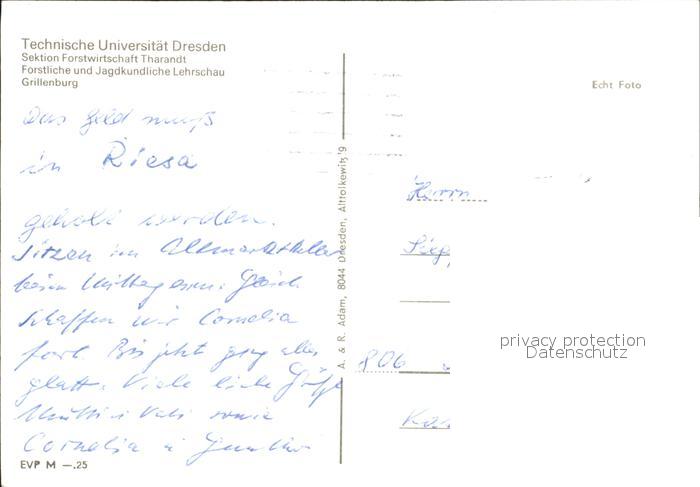 Technische Universität Dresden
Sektion Forstwirtschaft Tharandt
Forstliche und Jagdkundliche Lehrschau
Grillenburg
Das Geld muß
in Riesa
geholt werden.
Sitzen im Altmarktkeller
beim Mittagessen. Gleich
schaffen wir Cornelia
fort. Bis jetzt ging alles
glatt. Viele liebe Grüße
Mutti u. Vati sowie
Cornelia u.
EVP M —.25
A. & R. Adam, 8044 Dresden, Alttolkewitz 9
Echt Foto
Herrn
Sieg
806
privacy protection
Datenschutz